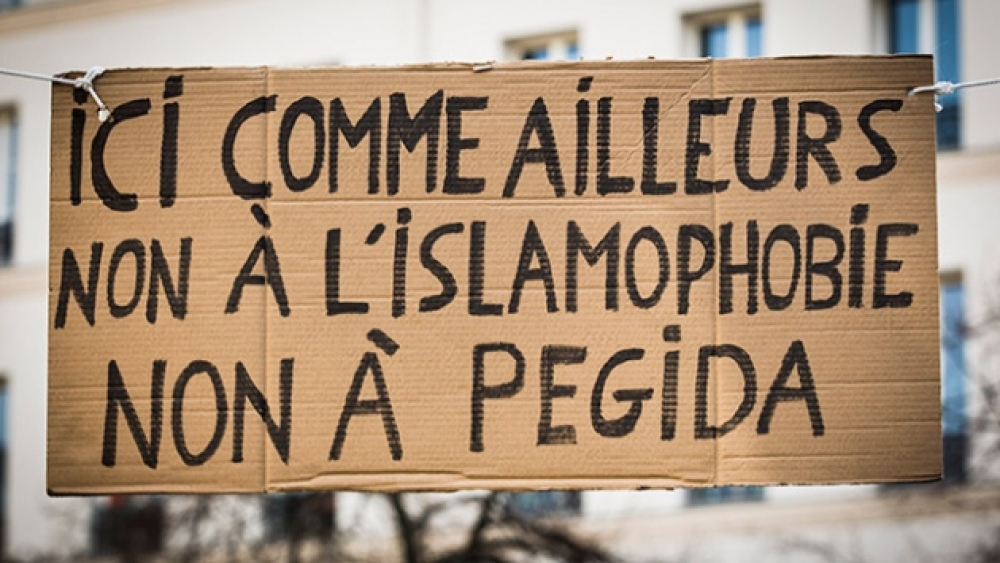 iCi COMME AiLLEURS
NON À L'iSLAMOPHOBiE
NON À PEGiDA